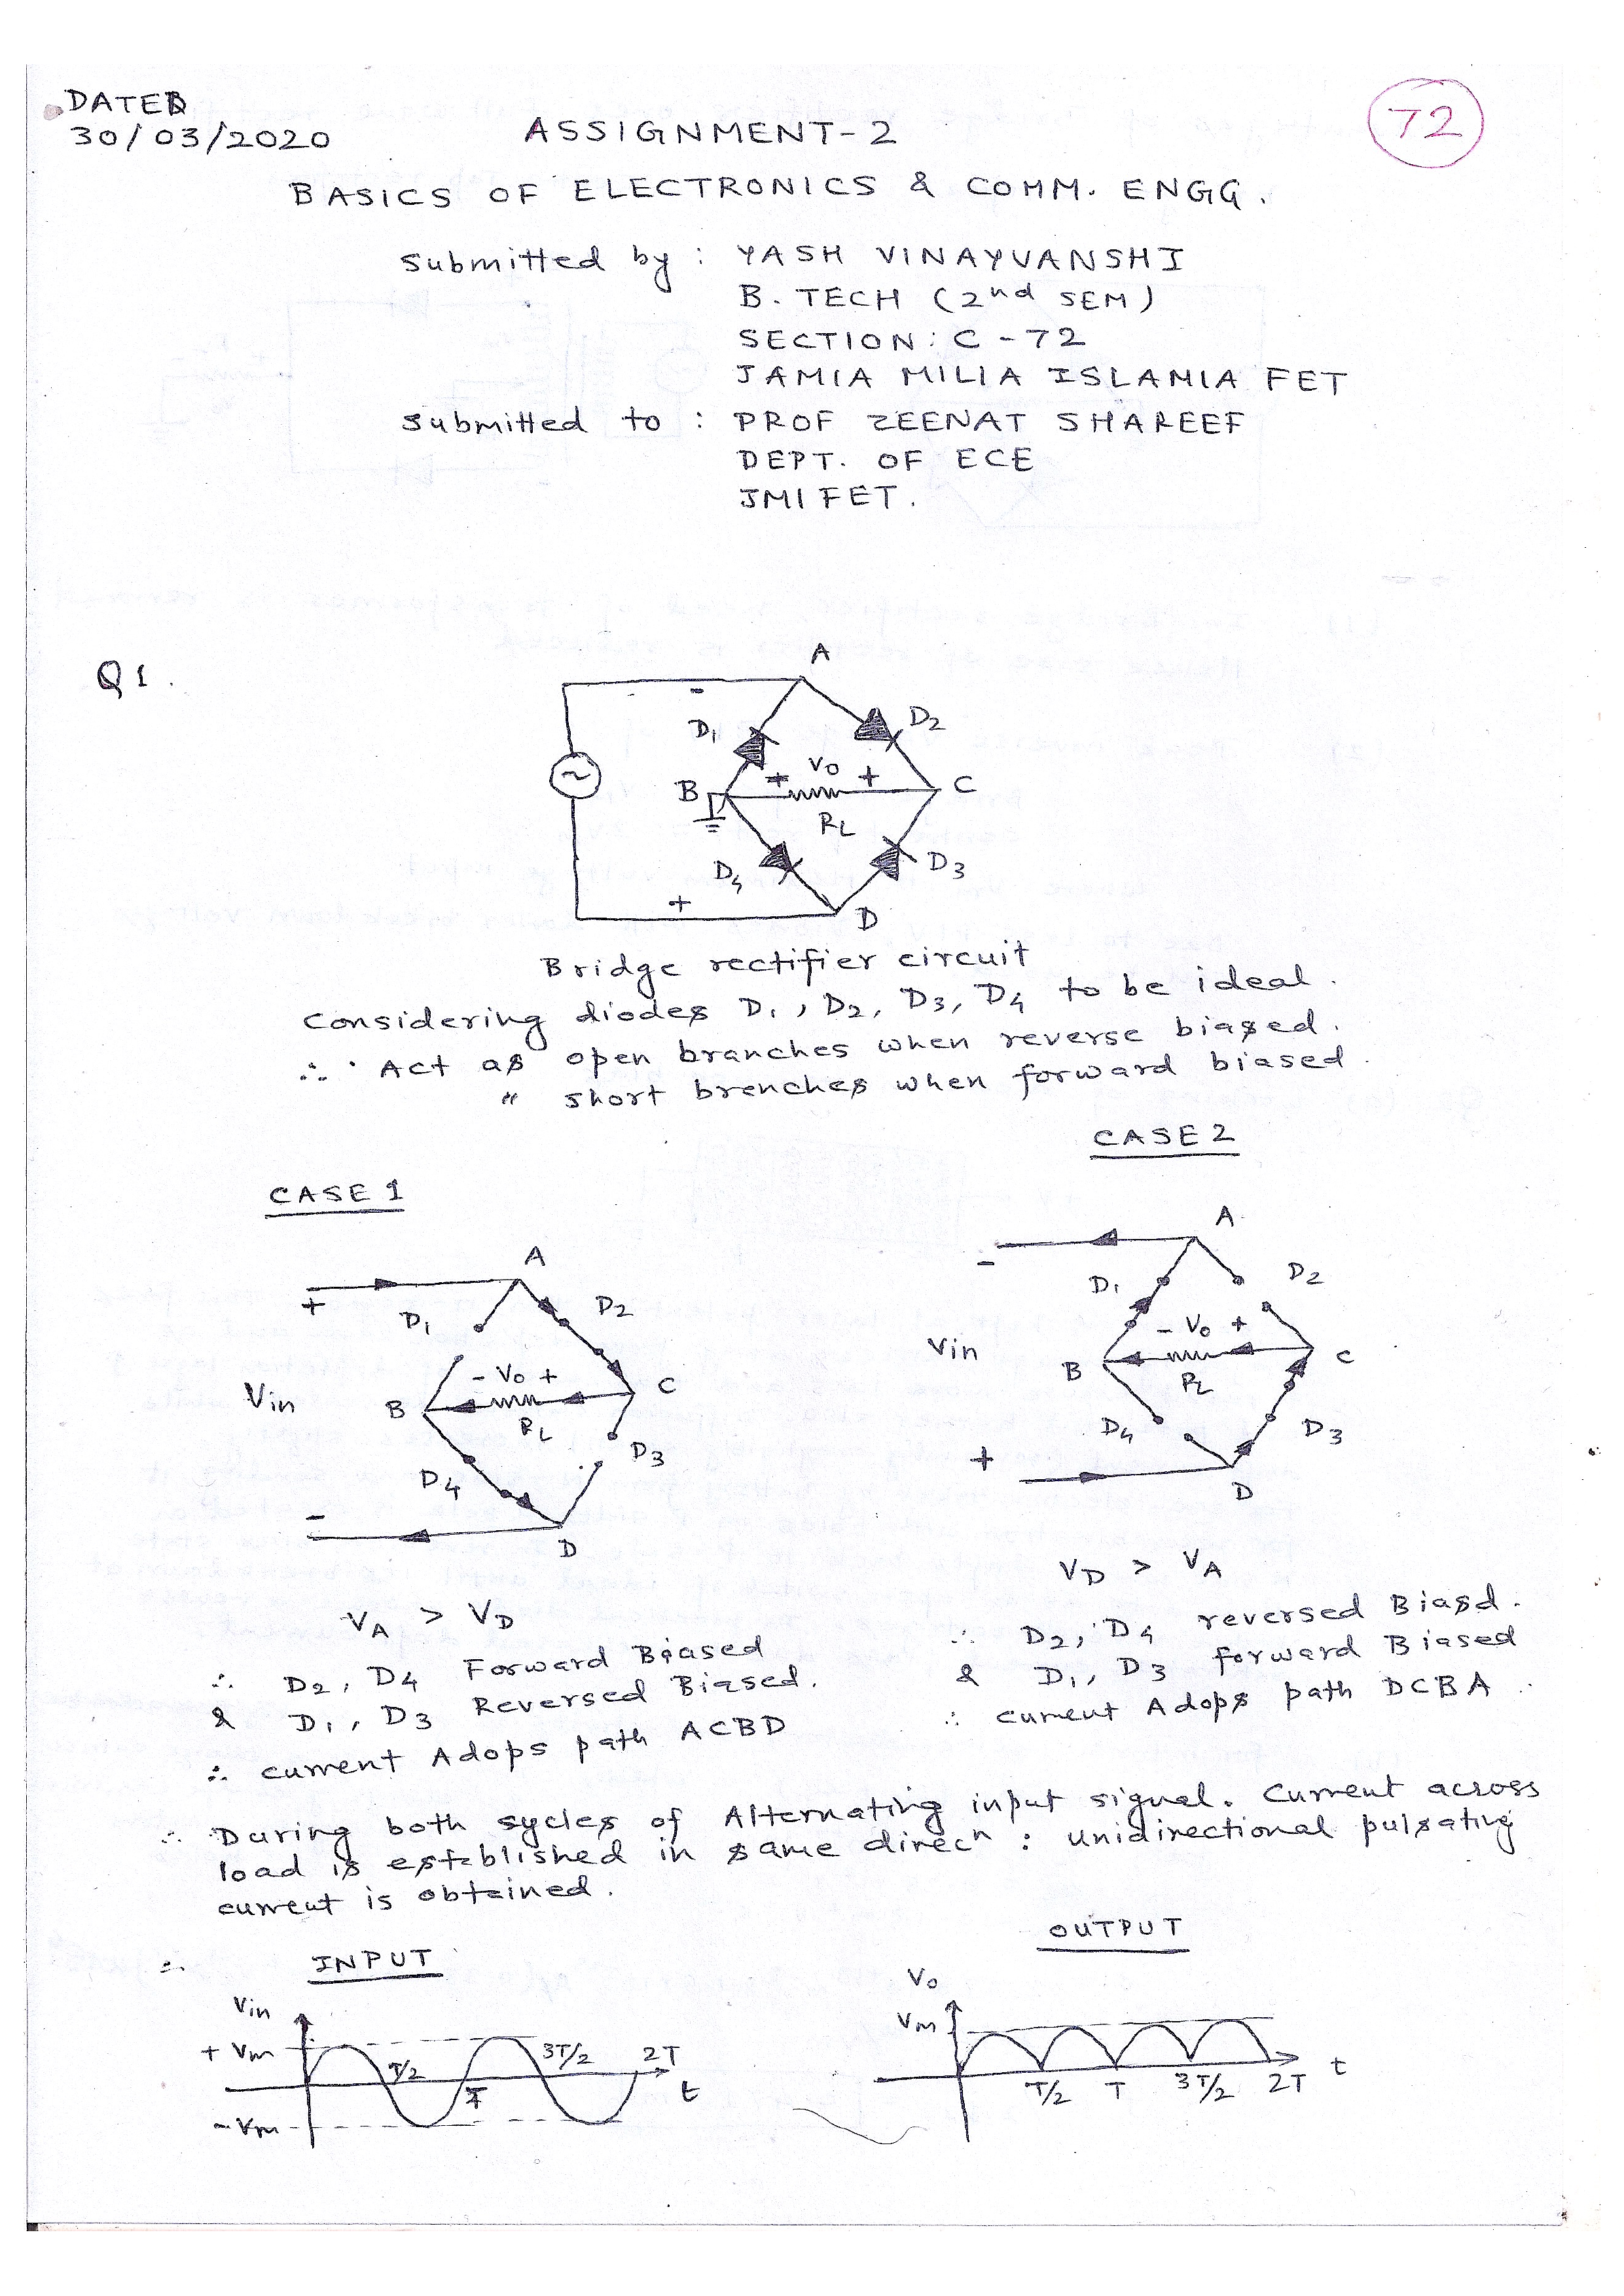 DATED
30/03/2020
72
ASSIGNMENT-2
BASICS OF ELECTRONICS & COMM. ENGG.
submitted by : YASH VINAYVANSHI
B. TECH (2nd SEM)
SECTION: C-72
JAMIA MILIA ISLAMIA FET
submitted to : PROF ZEENAT SHAREEF
DEPT. OF ECE
JMI FET.
Q1.
A
-
D1
D2
~
B
+ Vo +
C
RL
D4
D3
+
D
Bridge rectifier circuit
Considering diodes D1, D2, D3, D4 to be ideal.
∴ Act as open branches when reverse biased.
" short brenches when forward biased
CASE 1
A
+
D1
D2
- Vo +
Vin
B
C
RL
D3
D4
-
D
VA > VD
∴ D2, D4 Forward Biased
& D1, D3 Reversed Biased.
∴ current Adops path ACBD
CASE 2
A
-
D1
D2
- Vo +
Vin
B
C
RL
D4
D3
+
D
VD > VA
∴ D2, D4 reversed Biasd.
& D1, D3 forward Biased
∴ current Adops path DCBA
∴ During both sycles of Alternating input signal. Current across
load is established in same direcn : unidirectional pulsating
current is obtained.
∴ INPUT
Vin
+ Vm
T/2
T
3T/2
2T
t
- Vm
OUTPUT
Vo
Vm
T/2
T
3T/2
2T
t